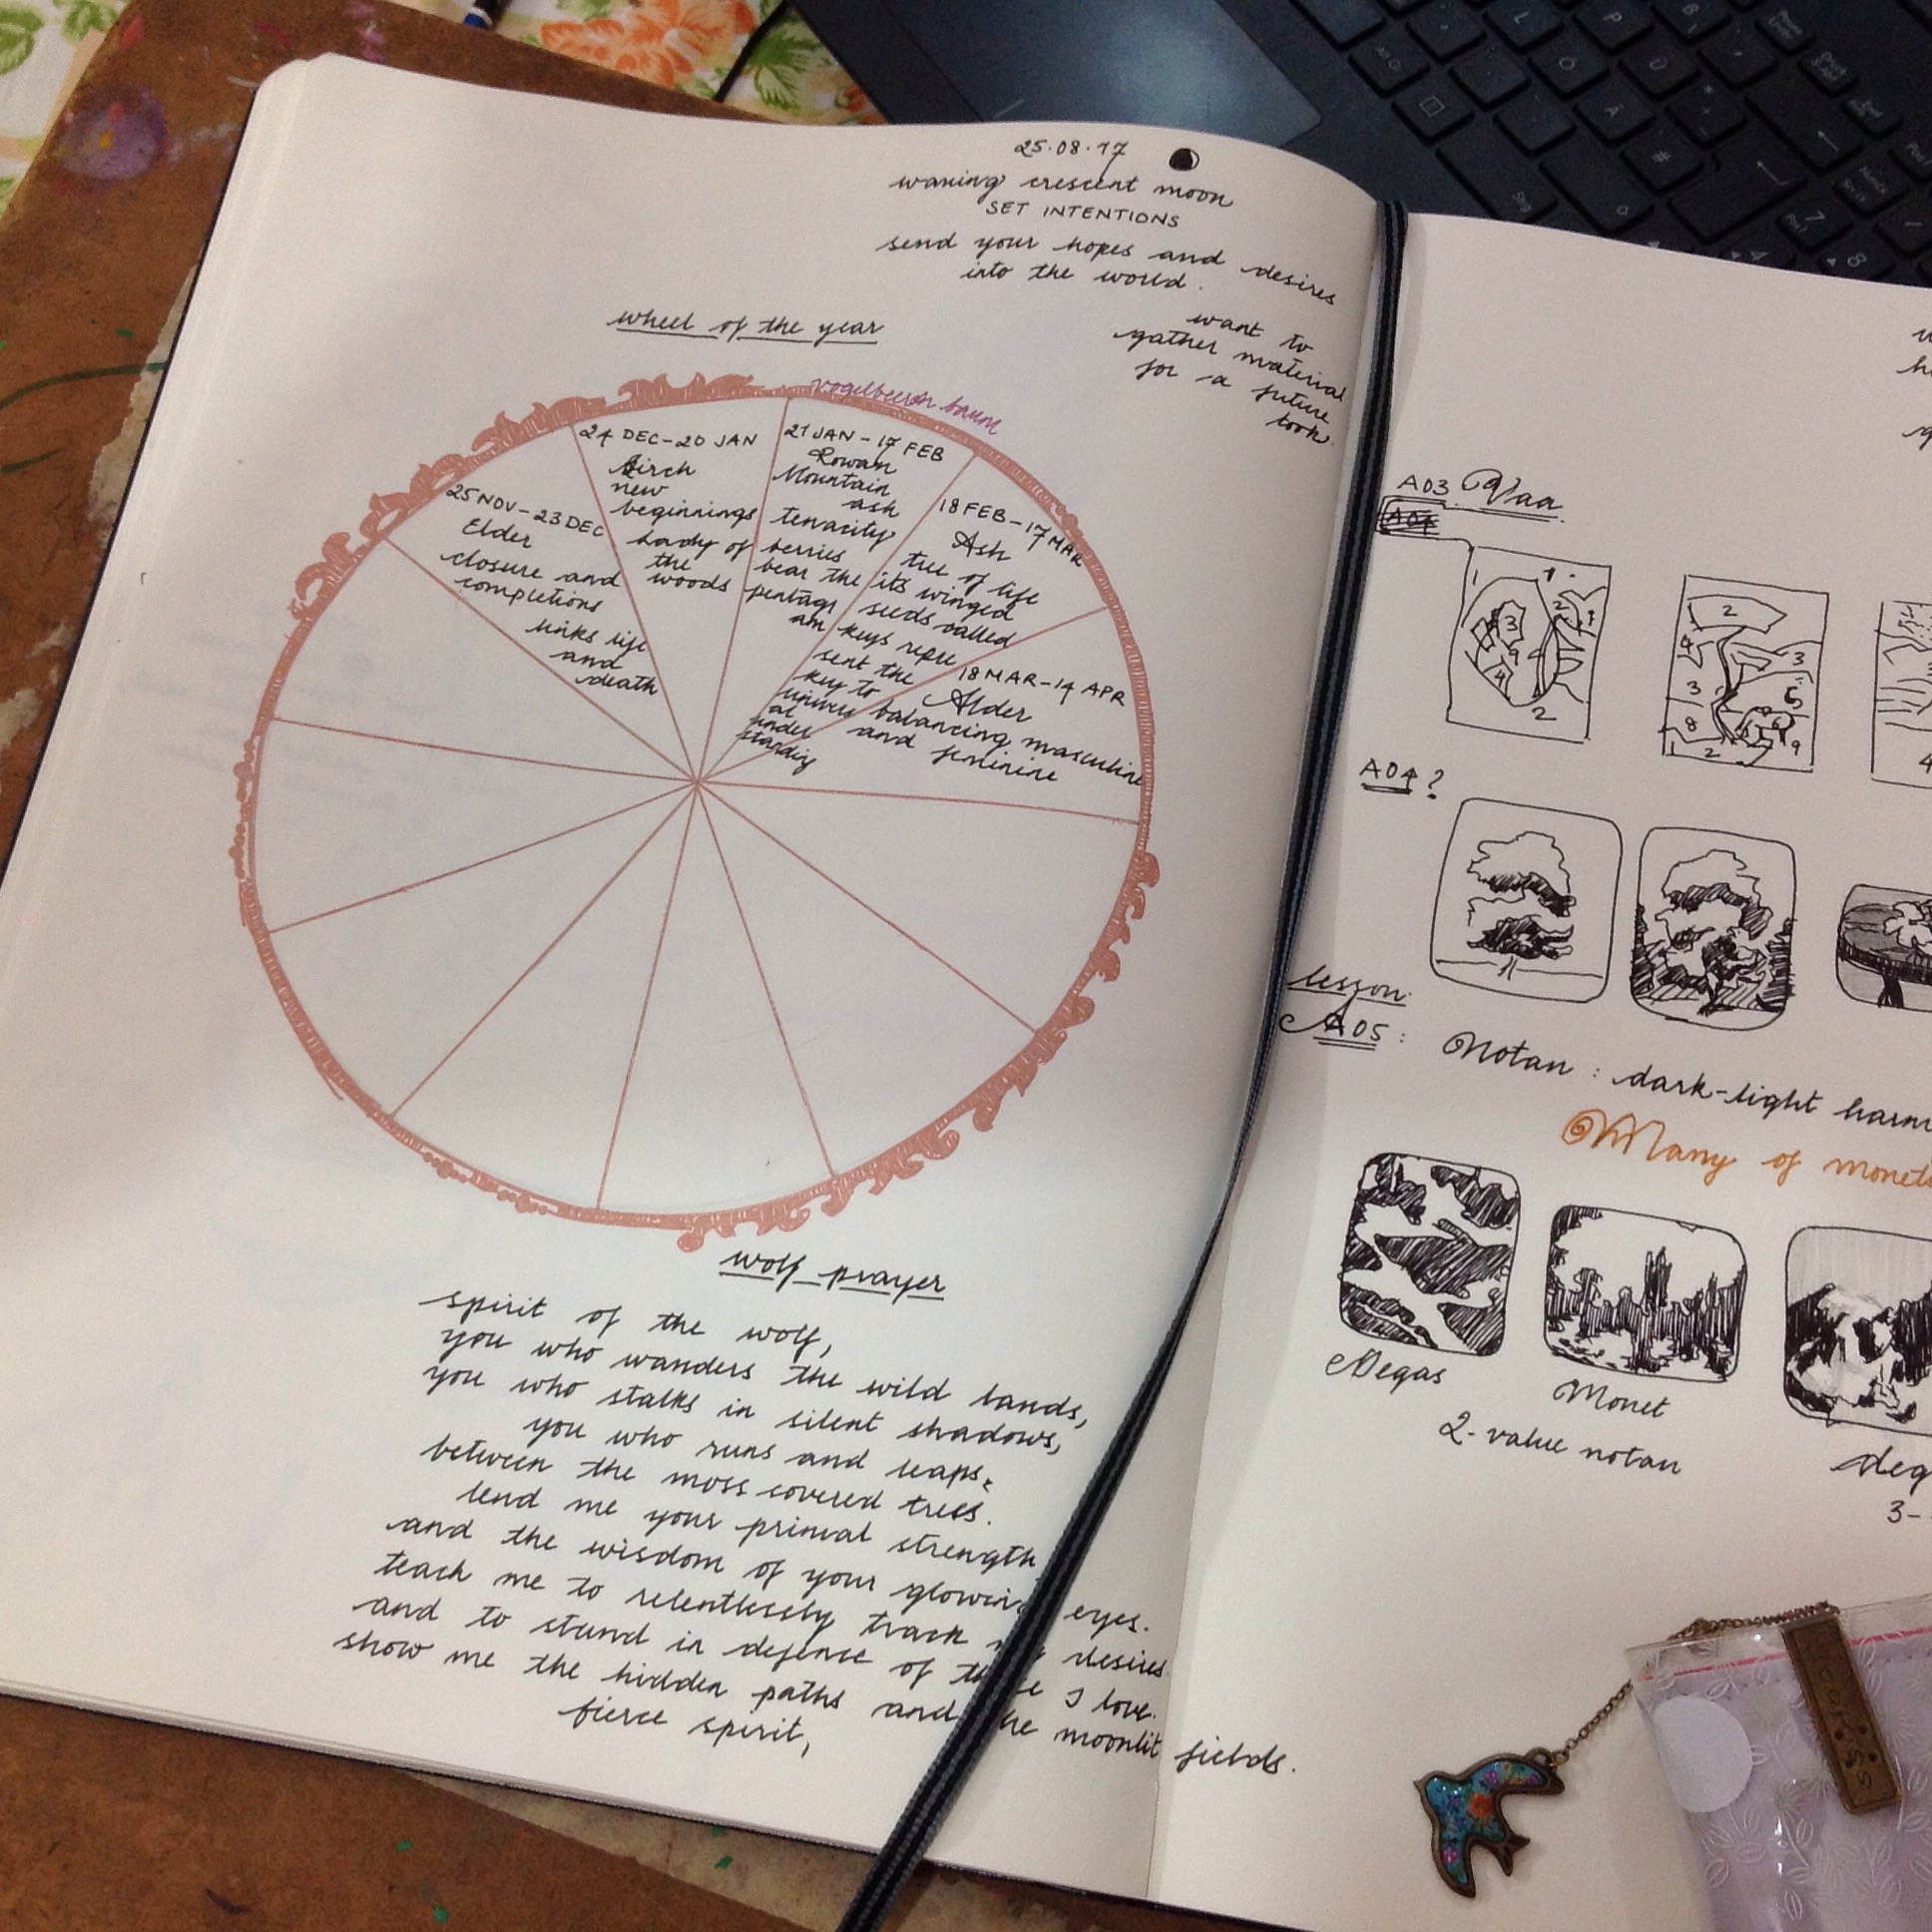 25.08.17
waxing crescent moon
SET INTENTIONS
send your hopes and desires
into the world.
want to
gather material
for a future
book
wheel of the year
vogelbeeren baum
25 NOV - 23 DEC
Elder
closure and
completions
links life
and
death
24 DEC - 20 JAN
Birch
new
beginnings
Lady of
the
woods
21 JAN - 17 FEB
Rowan
Mountain
ash
tenacity
berries
bear the
pentagr
am
18 FEB - 17 MAR
Ash
tree of life
its winged
seeds called
keys repre
sent the
key to
univers
al
under
standing
18 MAR - 14 APR
Alder
balancing masculine
and feminine
wolf prayer
spirit of the wolf,
you who wanders the wild lands,
you who stalks in silent shadows,
you who runs and leaps,
between the moss covered trees.
lend me your primal strength
and the wisdom of your glowing eyes.
teach me to relentlessly track desires
and to stand in defence of I love.
show me the hidden paths and he moonlit fields.
fierce spirit,
A03
A04
1
1
2
1
3
4
2
2
4
3
3
5
8
6
2
9
4
A04?
lesson
A05:
Notan: dark-light harm
Many of monets
Degas
Monet
2-value notan
deg
3-